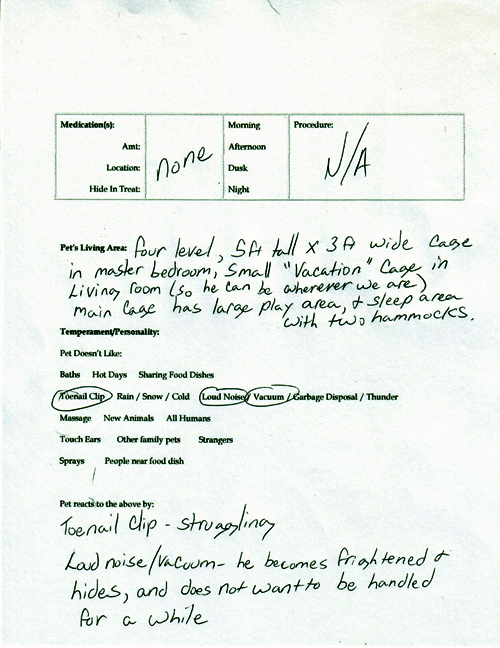 Medication(s): Morning Procedure:
Amt: Afternoon
none N/A
Location: Dusk
Hide In Treat: Night
Pet's Living Area: four level, 5ft tall x 3ft wide cage
in master bedroom, Small "Vacation" Cage in
Living room (so he can be wherever we are)
main cage has large play area, & sleep area
with two hammocks.
Temperament/Personality:
Pet Doesn't Like:
Baths Hot Days Sharing Food Dishes
Toenail Clip Rain / Snow / Cold Loud Noise/ Vacuum / Garbage Disposal / Thunder
Massage New Animals All Humans
Touch Ears Other family pets Strangers
Sprays People near food dish
Pet reacts to the above by:
Toenail Clip - struggling
Loud noise/Vacuum- he becomes frightened &
hides, and does not want to be handled
for a while